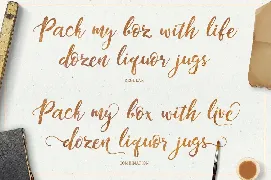 Pack my boz with life
dozen liquor jugs
REGULAR
Pack my box with live
dozen liquor jugs
COMBINATION